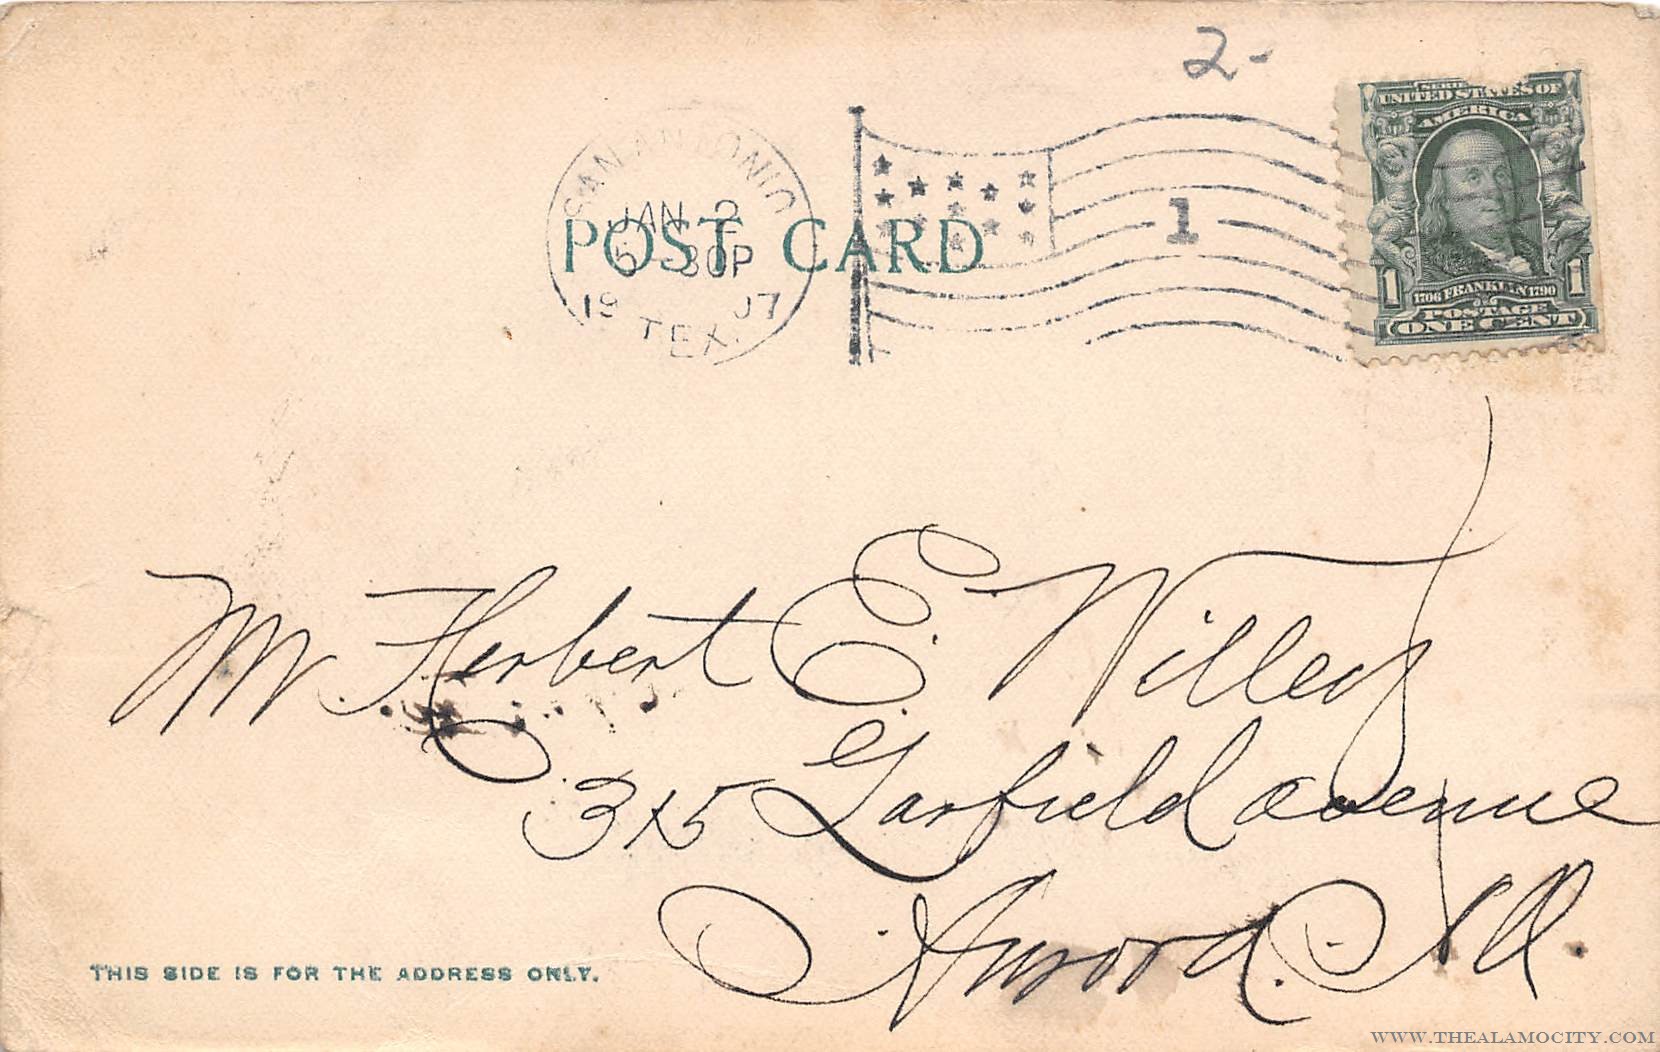 2-
SERIES 1902
UNITED STATES OF
AMERICA
SAN ANTONIO
JAN 2
5 - 30P
19 07
TEX.
1
POST CARD
1 1706 FRANKLIN 1790 1
POSTAGE
ONE CENT
Mr. Herbert E. Willey
315 Garfield avenue
Aurora. Ill.
THIS SIDE IS FOR THE ADDRESS ONLY.
WWW.THEALAMOCITY.COM